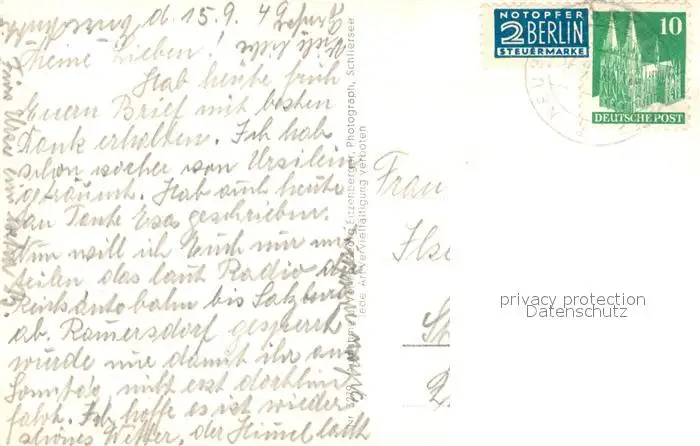 d. 15.9.49
Meine Lieben!
Hab heute früh
Euern Brief mit besten
Dank erhalten. Ich hab
schon vorher von Ursilein
geträumt. Hab auch heute
an Tante Esa geschrieben.
Nun will ich Euch nur mit
teilen, das laut Radio die
Reichsautobahn bis Salzburg
ab. Ramersdorf gesperrt
wurde nur damit ihr am
Sonntag nicht erst dorthin
fahrt. Ich hoffe es ist wieder
schönes Wetter, der Himmel lacht
Enzenberger, Photograph, Schliersee
Jede Art Vervielfältigung verboten
NOTOPFER
2 BERLIN
STEUERMARKE
10
DEUTSCHE POST
Frau
Ilse
privacy protection
Datenschutz